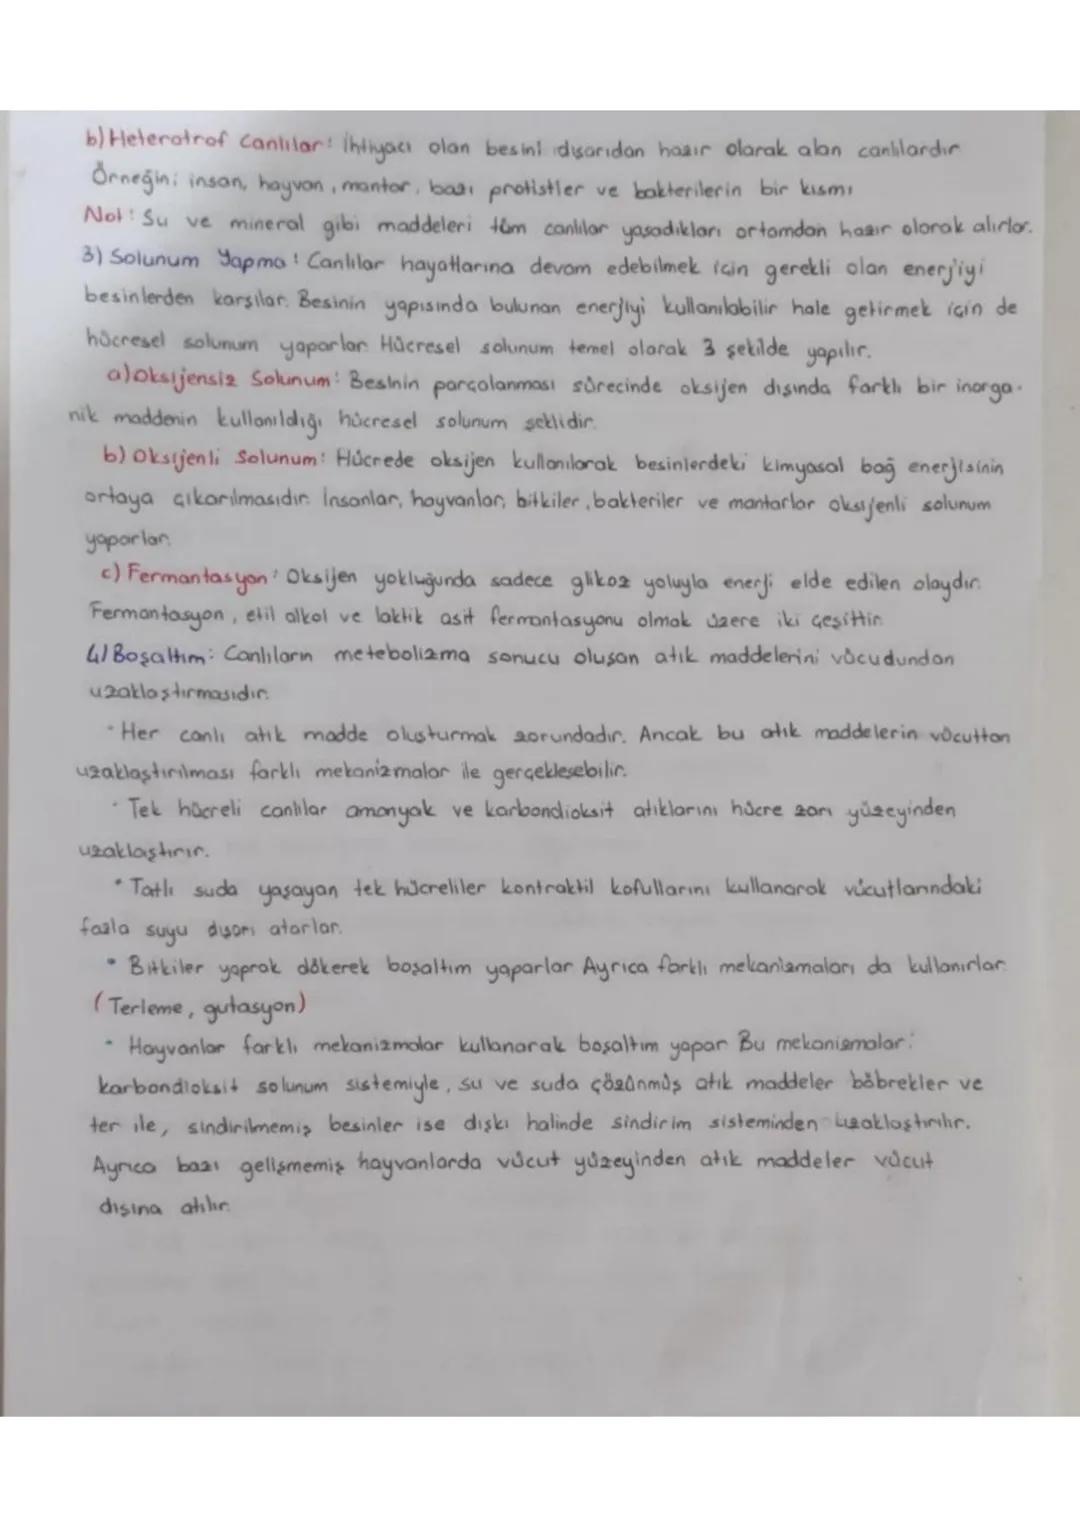 b) Heterotrof Canlılar: İhtiyacı olan besini dışarıdan hazır olarak alan canlılardır
Örneğin; insan, hayvan, mantar, bazı protistler ve bakterilerin bir kısmı
Not: Su ve mineral gibi maddeleri tüm canlılar yaşadıkları ortamdan hazır olarak alırlar.
3) Solunum Yapma: Canlılar hayatlarına devam edebilmek için gerekli olan enerjiyi
besinlerden karşılar. Besinin yapısında bulunan enerjiyi kullanılabilir hale getirmek için de
hücresel solunum yaparlar. Hücresel solunum temel olarak 3 şekilde yapılır.
a) Oksijensiz Solunum: Besinin parçalanması sürecinde oksijen dışında farklı bir inorga-
nik maddenin kullanıldığı hücresel solunum şeklidir.
b) Oksijenli Solunum: Hücrede oksijen kullanılarak besinlerdeki kimyasal bağ enerjisinin
ortaya çıkarılmasıdır. İnsanlar, hayvanlar, bitkiler, bakteriler ve mantarlar oksijenli solunum
yaparlar.
c) Fermantasyon: Oksijen yokluğunda sadece glikoz yoluyla enerji elde edilen olaydır.
Fermantasyon, etil alkol ve laktik asit fermantasyonu olmak üzere iki çeşittir.
4) Boşaltım: Canlıların metebolizma sonucu oluşan atık maddelerini vücudundan
uzaklaştırmasıdır.
• Her canlı atık madde oluşturmak zorundadır. Ancak bu atık maddelerin vücuttan
uzaklaştırılması farklı mekanizmalar ile gerçekleşebilir.
• Tek hücreli canlılar amonyak ve karbondioksit atıklarını hücre zarı yüzeyinden
uzaklaştırır.
• Tatlı suda yaşayan tek hücreliler kontraktil kofullarını kullanarak vücutlarındaki
fazla suyu dışarı atarlar.
• Bitkiler yaprak dökerek boşaltım yaparlar Ayrıca farklı mekanizmaları da kullanırlar.
(Terleme, gutasyon)
• Hayvanlar farklı mekanizmalar kullanarak boşaltım yapar Bu mekanizmalar:
karbondioksit solunum sistemiyle, su ve suda çözünmüş atık maddeler böbrekler ve
ter ile, sindirilmemiş besinler ise dışkı halinde sindirim sisteminden uzaklaştırılır.
Ayrıca bazı gelişmemiş hayvanlarda vücut yüzeyinden atık maddeler vücut
dışına atılır.